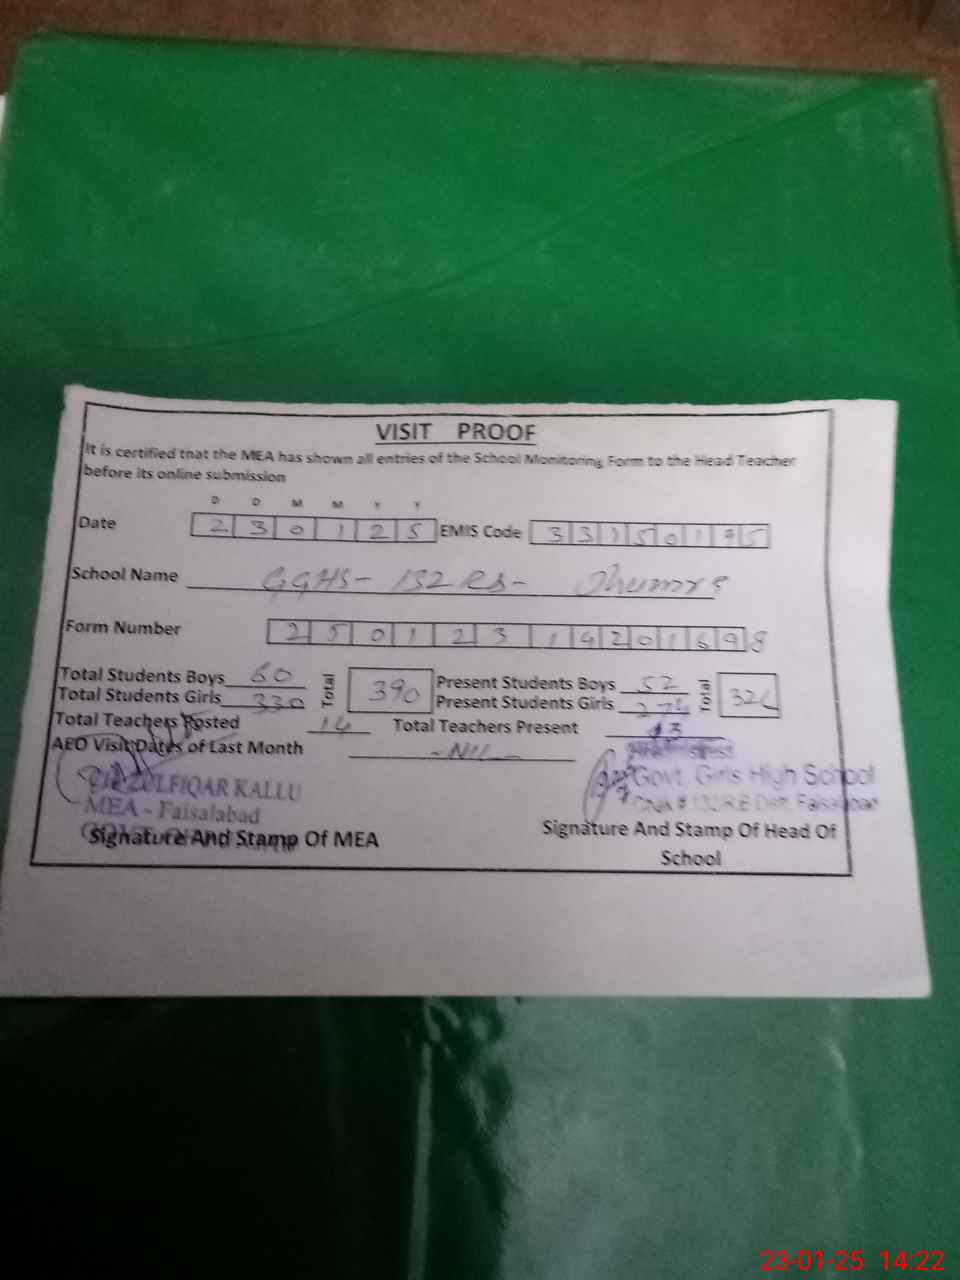 VISIT PROOF
It is certified that the MEA has shown all entries of the School Monitoring Form to the Head Teacher
before its online submission
D D M M Y Y
Date 2 3 0 1 2 5 EMIS Code 3 3 1 5 0 1 9 5
School Name GGHS - 132 RB -
Form Number 2 5 0 1 2 3 1 4 2 0 1 6 9 8
Total Students Boys 60 Total 390 Present Students Boys 52 Total
Total Students Girls 330 Present Students Girls 274
Total Teachers Posted 14 Total Teachers Present 13
AEO Visit Dates of Last Month - NIL -
ZULFIQAR KALLU
MEA - Faisalabad
Signature And Stamp Of MEA
Govt. Girls High School
Chak # 132 R.B Distt. Faisalabad
Signature And Stamp Of Head Of
School
23-01-25 14:22